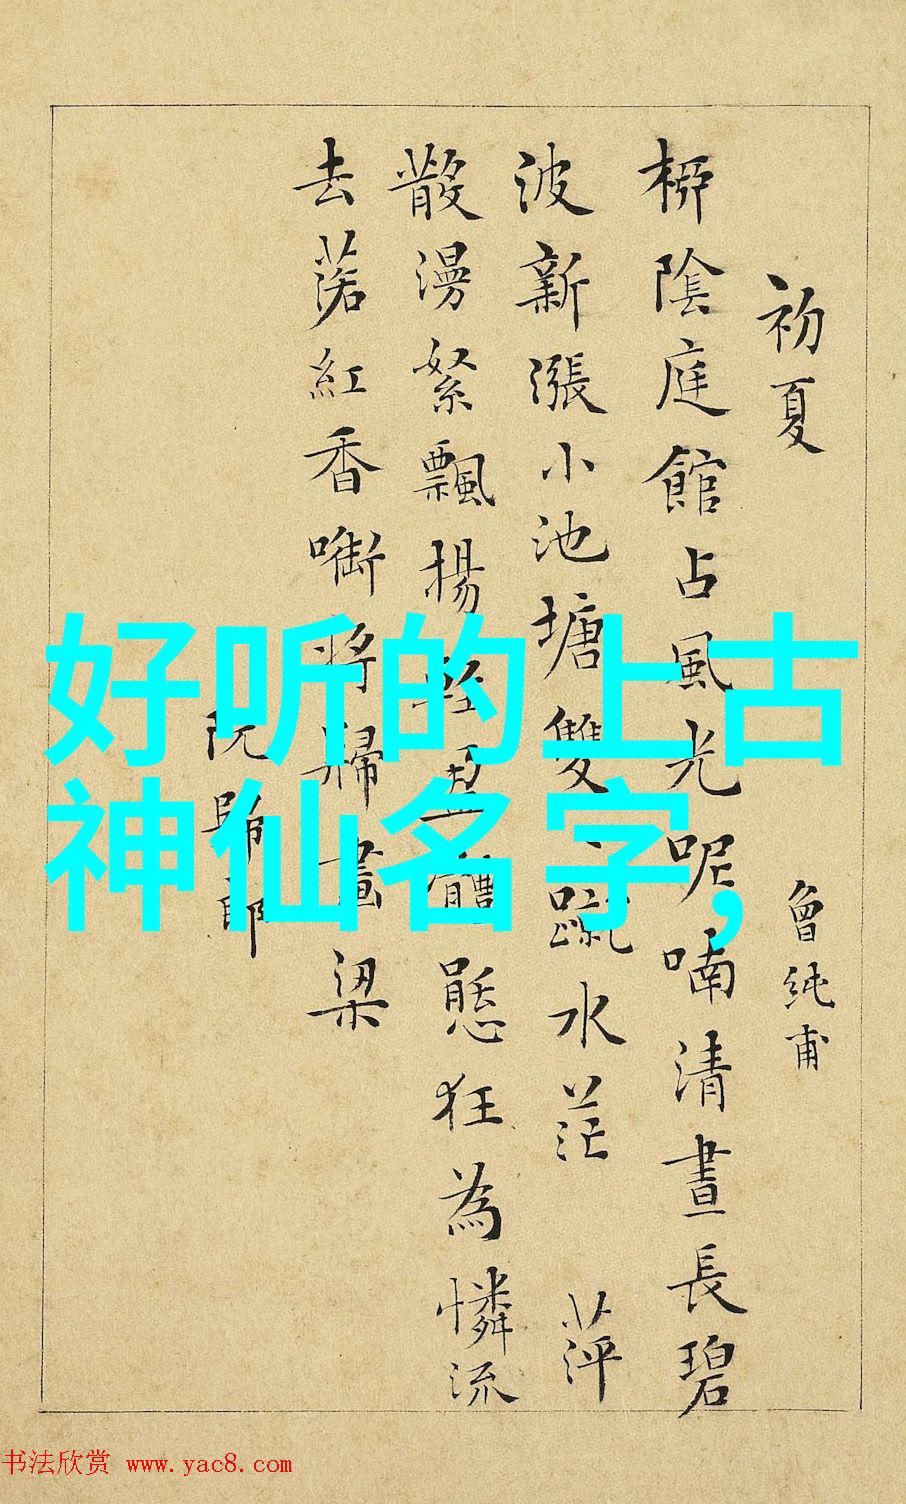 初夏
曾純甫
桺陰庭館占風光呢喃清晝長碧
波新漲小池塘雙〻蹴水茫 萍
散漫絮飄揚輕盈體態狂為憐流
去落紅香啣將歸畫梁
阮郎歸
好听的上古
神仙名字,
书法欣赏 www.yac8.com